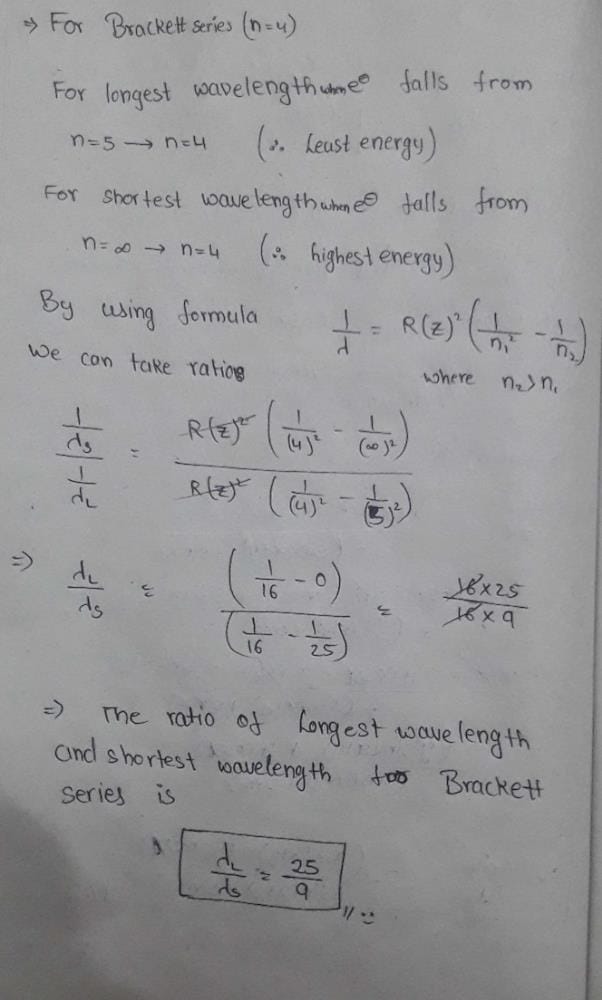 ⇒ For Brackett series (n=4)
For longest wavelength when e⊖ falls from
n=5 → n=4 (∴ Least energy)
For shortest wavelength when e⊖ falls from
n=∞ → n=4 (∴ highest energy)
By using formula 1/λ = R(z)² (1/n₁² - 1/n₂)
We can take ratios where n₂>n₁
(1/λs)/(1/λL) = R(z)² (1/(4)² - 1/(∞)²) / R(z)² (1/(4)² - 1/(5)²)
⇒ λL/λs = (1/16 - 0)/(1/16 - 1/25) = 16×25/16×9
⇒ The ratio of Longest wavelength
and shortest wavelength for Brackett
series is
λL/λs = 25/9 //